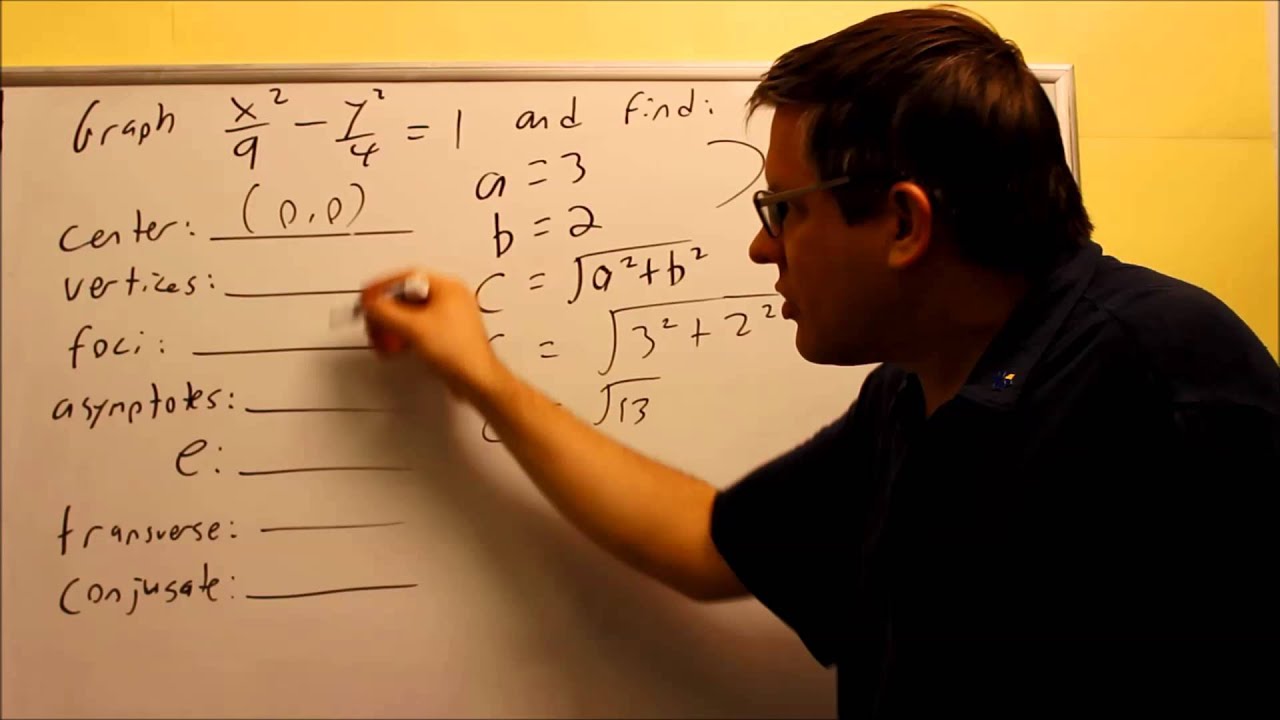 Graph x²/9 − y²/4 = 1 and find:
center: (0,0)
vertices:
foci:
asymptotes:
e:
transverse:
conjugate:
a = 3
b = 2
c = √a²+b²
= √3² + 2²
√13